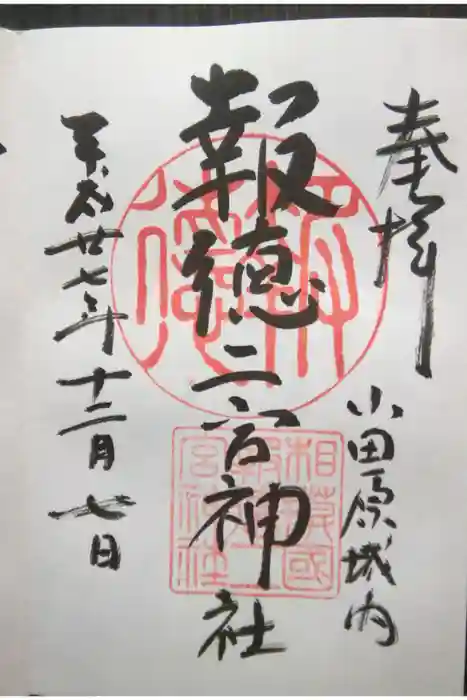 奉拝
小田原城内
報徳二宮神社
平成廿七年十二月七日
報徳
相模國
報徳二
宮神社